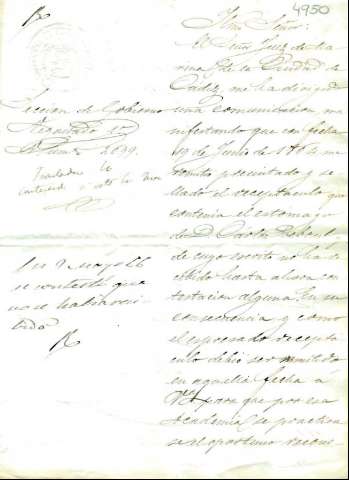 4950
Ilmo Señor:
El Señor Juez de Marina de la Ciudad de
Cadiz, me ha dirigido
una comunicacion ma
nifestando que con fecha
19 de Junio de 1864 me
remitio precintado y se
llado el receptaculo que
contenia el estomago
de D. Carlos
de cuyo escrito no ha re
cibido hasta ahora con
testacion alguna. En su
consecuencia y como
el espresado recepta
culo debio ser remitido
en aquella fecha á
V. para que por esa
Academia se practica
se el oportuno recono
Seccion de Gobierno
Negociado 2º
Num. 2699.
Trasladar lo
contenido
En 9 Mayo 66
se contestó que
no se habia reci
bido